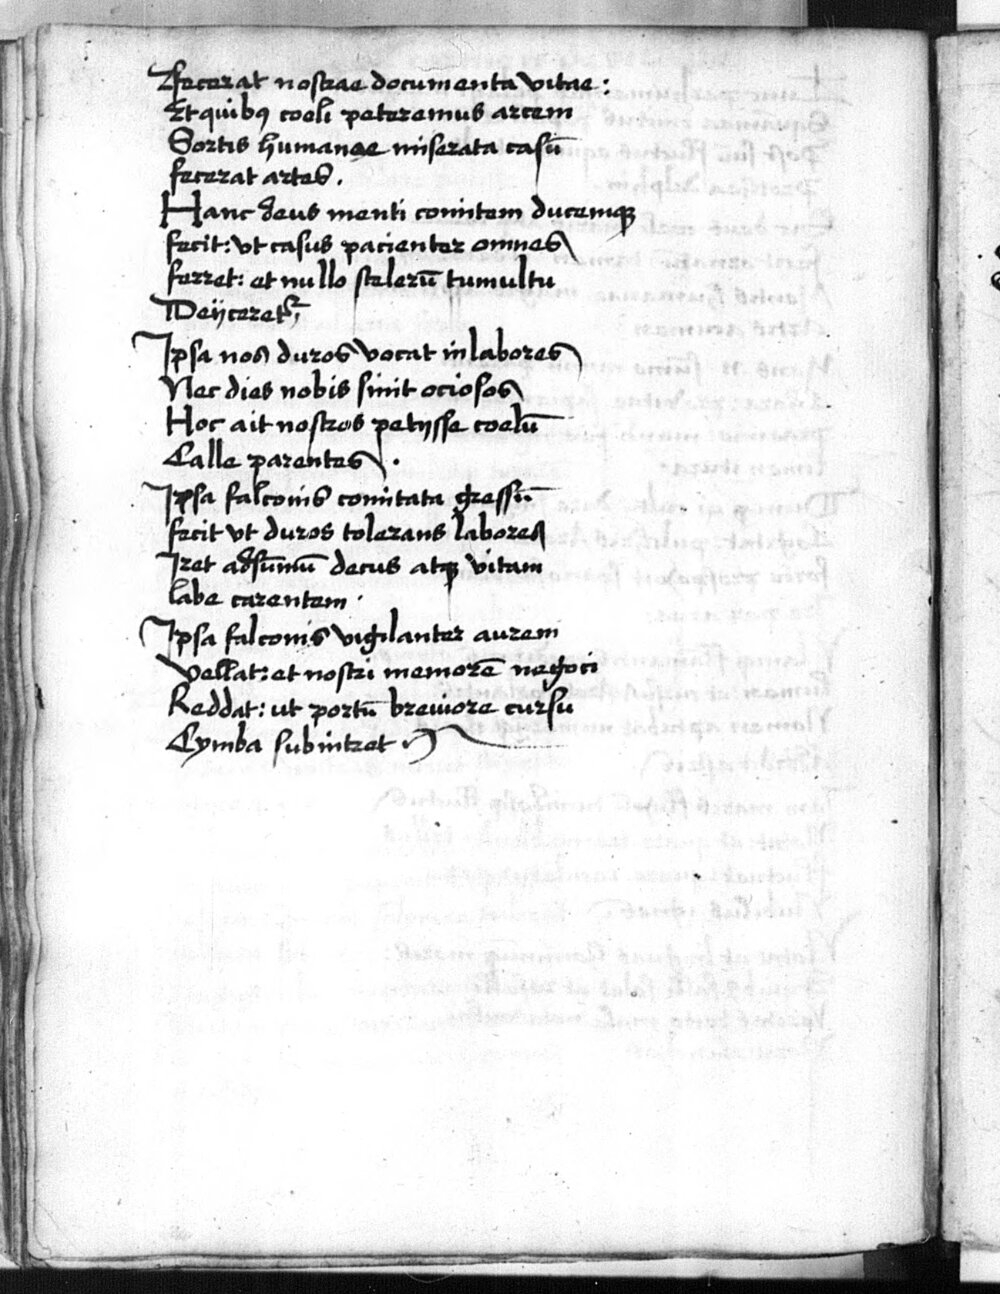 Fecerat nostrae documenta vitae:
Et quibꝫ coeli peteremus arcem
Sortis humanae miserata casū
fecerat artes.
Hanc deus menti comitem ducemqꝫ
fecit: vt casus pacienter omnes
ferret: et nullo scelerū tumultu
Deijceret
Ipsa nos duros vocat in labores
Nec dies nobis sinit ociosos
Hoc ait nostros petijsse coelū
Calle parentes.
Ipsa falconis comitata gressū
fecit vt duros tolerans labores
Iret ad sūmū decus atqꝫ vitam
labe carentem.
Ipsa falconis vigilanter aurem
Vellat: et nostri memorē negoci
Reddat: ut portū breuiore cursu
Cymba subintret